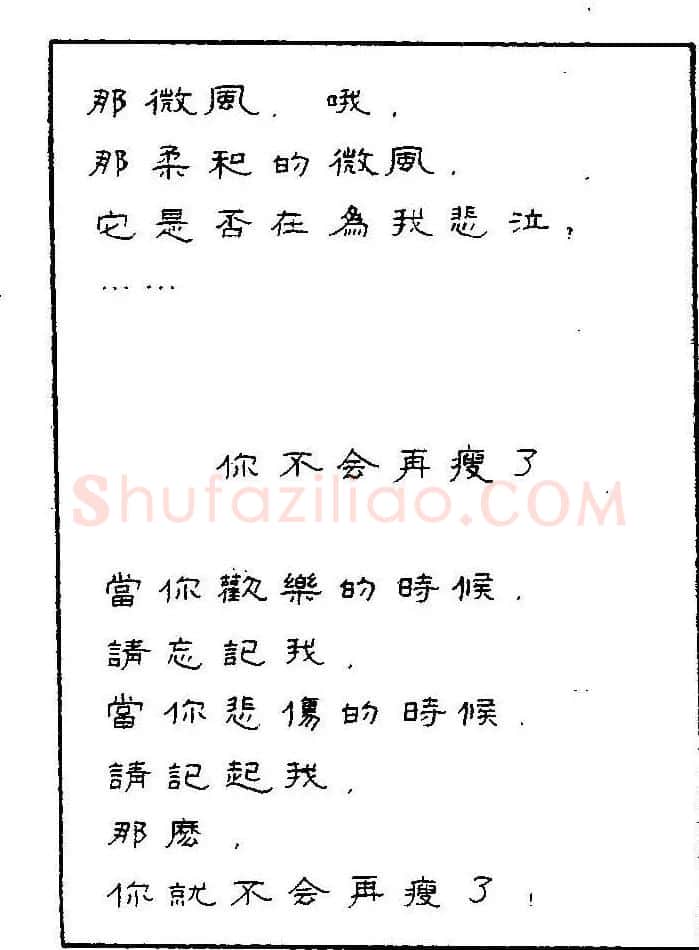 那微風，哦，
那柔和的微風，
它是否在為我悲泣？
……
你不会再瘦了
ShufaziliaO.COM
當你歡樂的時候，
請忘記我，
當你悲傷的時候，
請記起我，
那麼，
你就不会再瘦了！